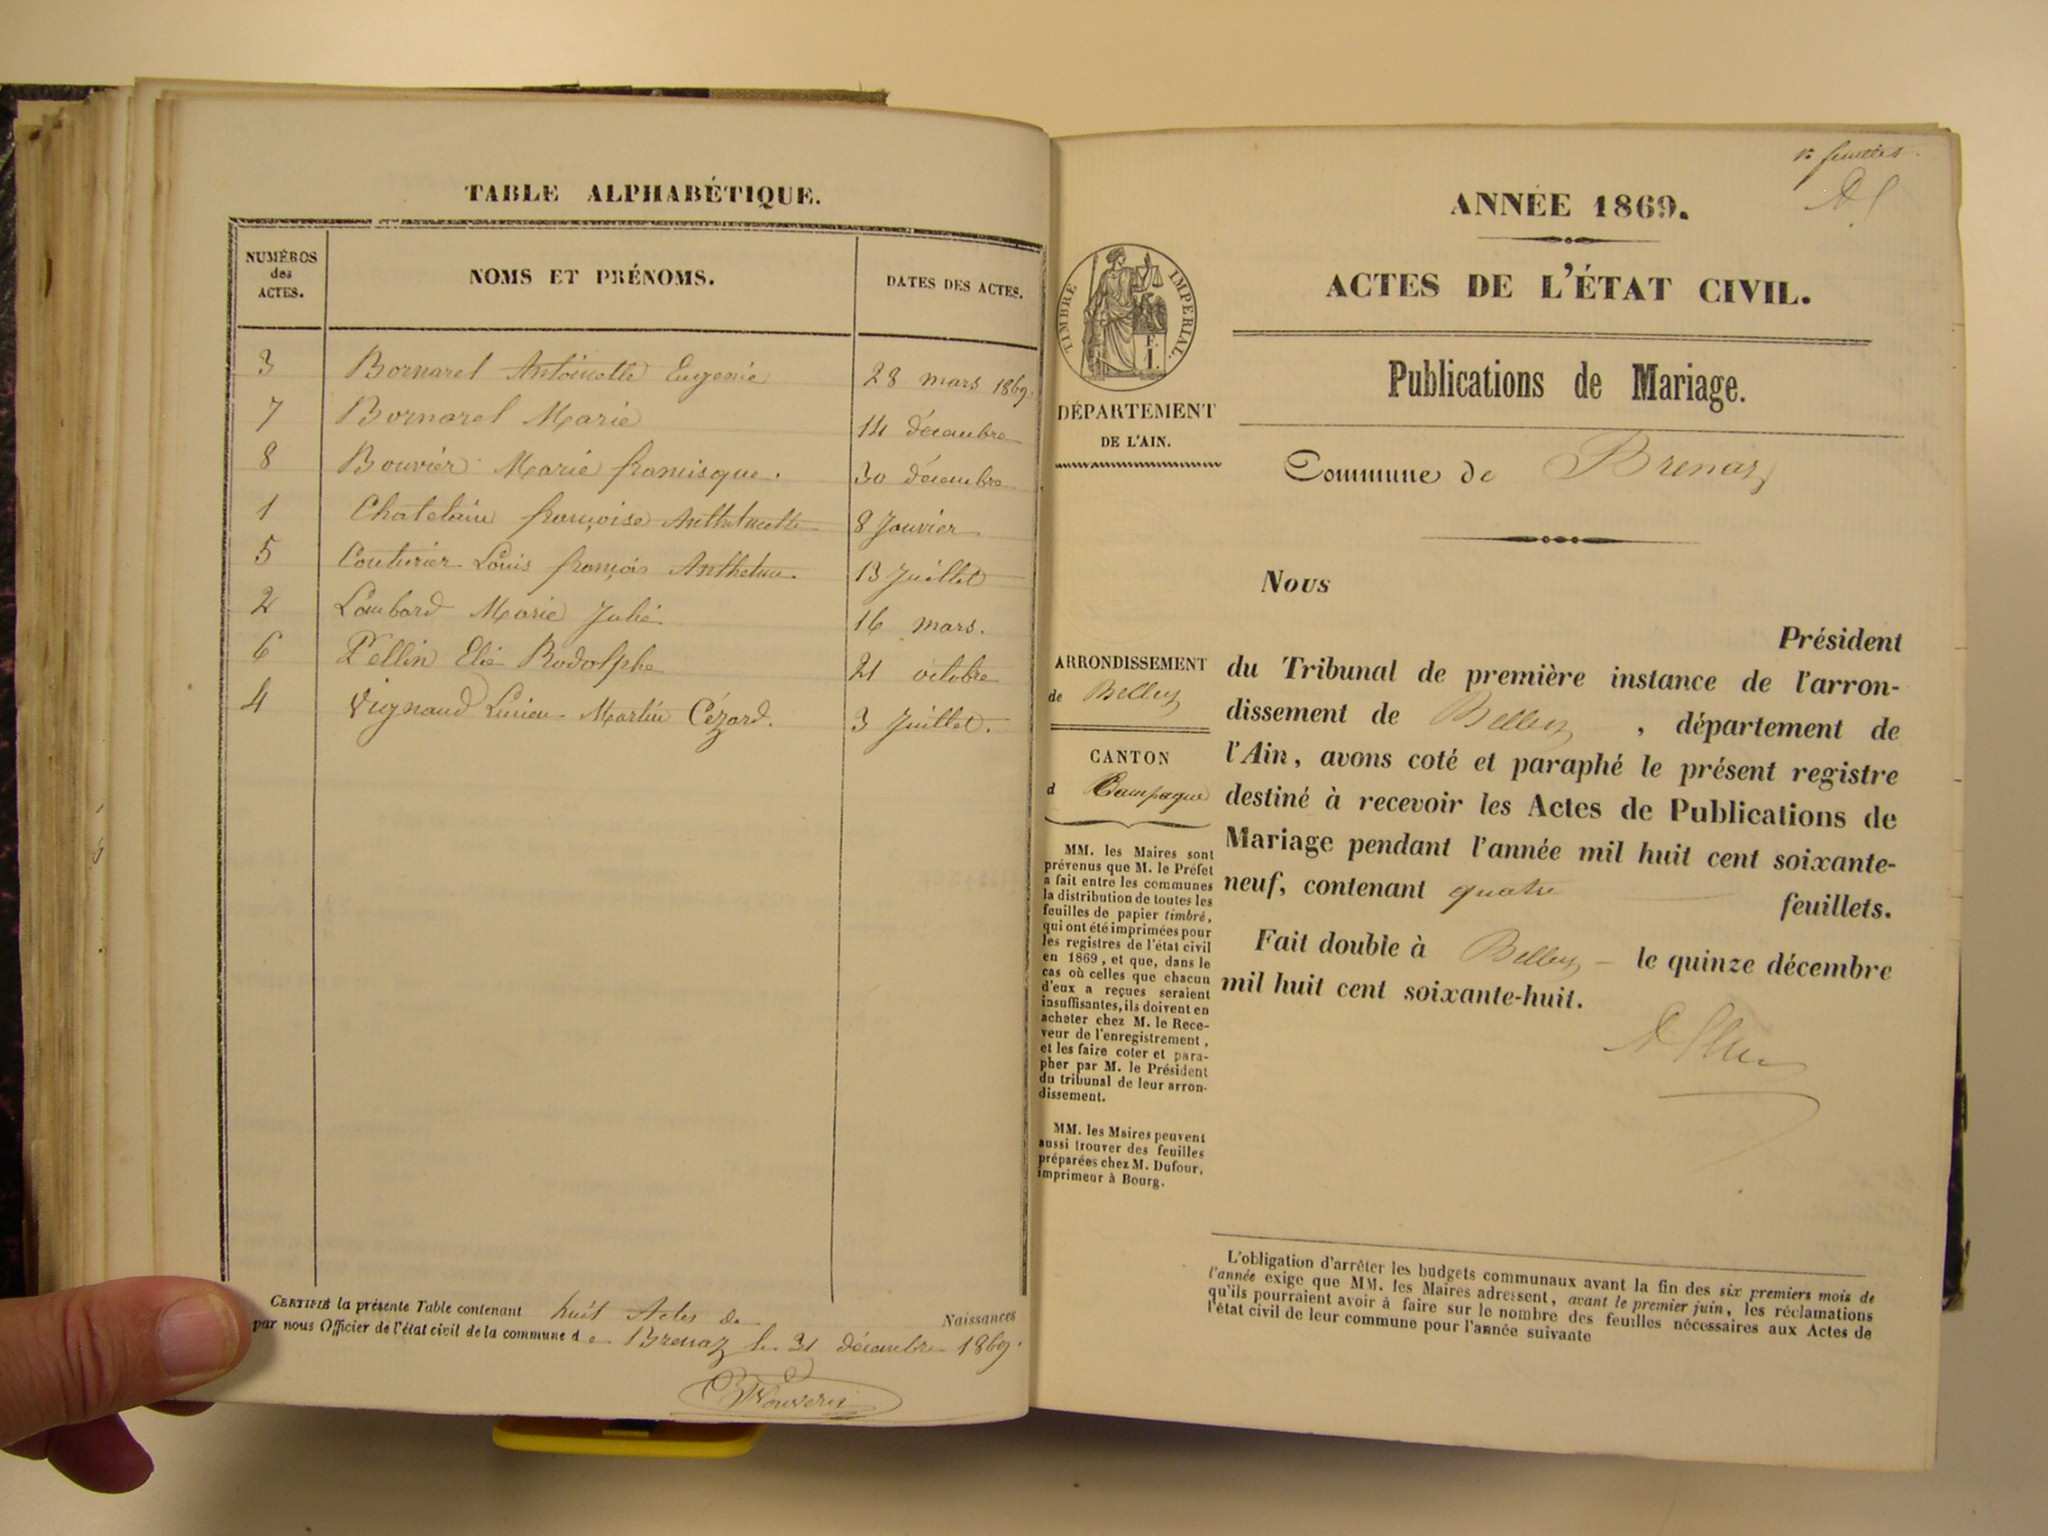 TABLE ALPHABÉTIQUE.
NUMÉROS des ACTES. NOMS ET PRÉNOMS. DATES DES ACTES.
3 Bornarel Antoinette Eugenie 28 mars 1869.
7 Bornarel Marie 14 décembre
8 Bouvier Marie francisque. 30 décembre
1 Chatelain françoise Anthelmette 8 Janvier
5 Couturier Louis françois Anthelme. 13 Juillet
2 Lombard Marie Julie 16 mars.
6 Pellin Elie Rodolphe 21 octobre
4 Vugnaud Lucien Martin Cézard. 3 Juillet.
CERTIFIÉ la présente Table contenant huit Actes de Naissances
par nous Officier de l'état civil de la commune de Brenaz le 31 décembre 1869.
feuillet
ANNÉE 1869.
ACTES DE L'ÉTAT CIVIL.
Publications de Mariage.
Commune de Brenaz
TIMBRE IMPÉRIAL.
DÉPARTEMENT
DE L'AIN.
ARRONDISSEMENT
de Belley
CANTON
d Champagne
MM. les Maires sont
prévenus que M. le Préfet
a fait entre les communes
la distribution de toutes les
feuilles de papier timbré,
qui ont été imprimées pour
les registres de l'état civil
en 1869, et que, dans le
cas où celles que chacun
d'eux a reçues seraient
insuffisantes, ils doivent en
acheter chez M. le Rece-
veur de l'enregistrement,
et les faire coter et para-
pher par M. le Président
du tribunal de leur arron-
dissement.
MM. les Maires peuvent
aussi trouver des feuilles
préparées chez M. Dufour,
imprimeur à Bourg.
Nous
Président
du Tribunal de première instance de l'arron-
dissement de Belley, département de
l'Ain, avons coté et paraphé le présent registre
destiné à recevoir les Actes de Publications de
Mariage pendant l'année mil huit cent soixante-
neuf, contenant quatre feuillets.
Fait double à Belley le quinze décembre
mil huit cent soixante-huit.
L'obligation d'arrêter les budgets communaux avant la fin des six premiers mois de
l'année exige que MM. les Maires adressent, avant le premier juin, les réclamations
qu'ils pourraient avoir à faire sur le nombre des feuilles nécessaires aux Actes de
l'état civil de leur commune pour l'année suivante